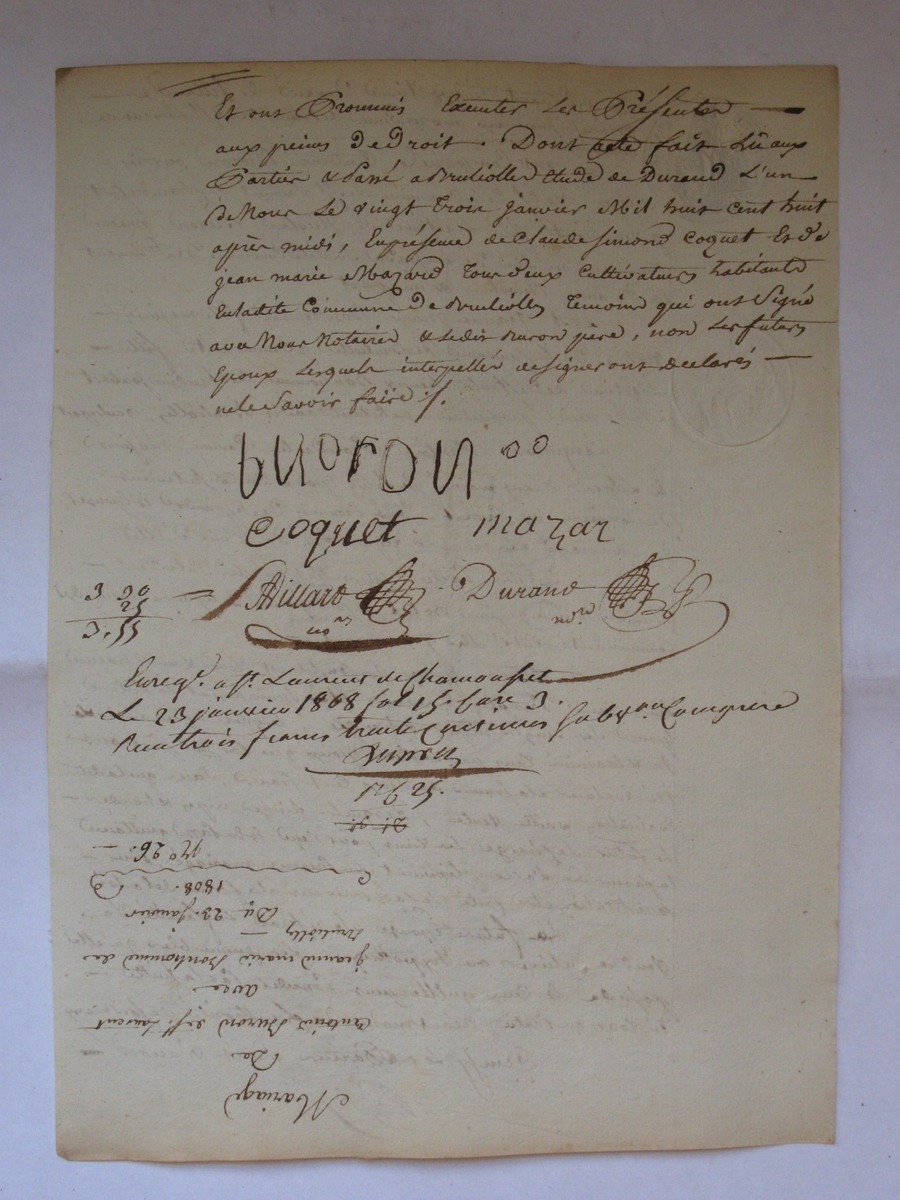 Et ont Promis Executer Les Présentes —
aux peines De Droit. Dont acte fait Lû aux
Parties & Passé a Brullolles Etude de Durand L'un
de Nous Le vingt Trois janvier Mil huit cent huit
après midi, En présence de Claude Simond Coquet Et de
jean marie Mazard Tous deux Cultivateurs habitants
En ladite Commune De Brullolles Temoins qui ont Signé
avec Nous Notaires & ledit Buron père, non Les futurs
Epoux Lesquels interpellés de signer ont declarés —
ne le Savoir faire ./.
buoron
coquet mazar
3 30
25
3.55
Villard Durand
nore nore
Enregé. a St. Laurent de Chamousset
Le 23 janvier 1808 fol 15. Case 3.
Recu trois francs trente centimes Subvon Comprise
25.
No 26.
Mariage
De
Antoine Buron de St. Laurent
avec
jeanne marie Bonhomme de
Brullolles —
Du 23. janvier
1808.